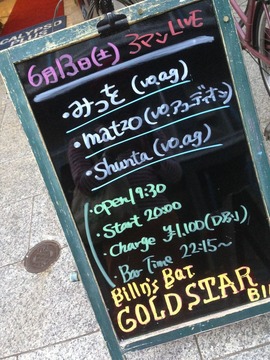 CALYPSO
6月13日(土) 3マンLIVE
・みっを(vo,ag)
・matzo(vo,アコーディオン)
・Shunta(vo,ag)
・open 19:30
・Start 20:00
・Charge ¥1,100(D別)
・Bar Time 22:15〜
Billy's Bar
GOLD STAR